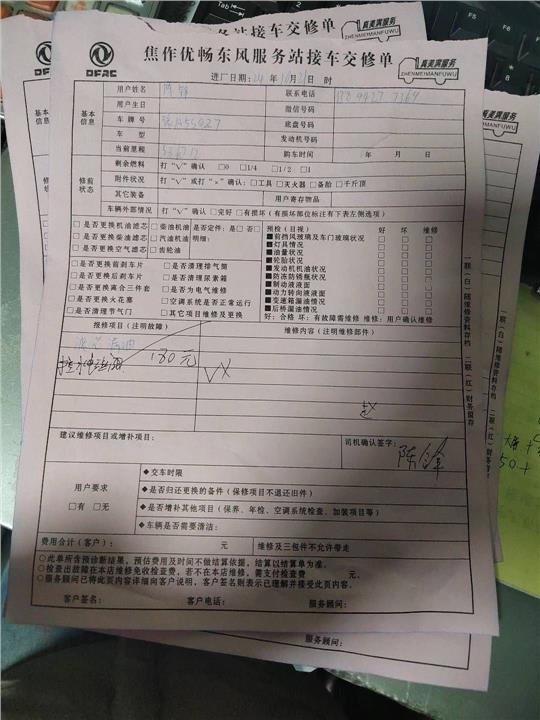 真美满服务
ZHENMEIMANFUWU
DFAC
焦作优畅东风服务站接车交修单
真美满服务
ZHENMEIMANFUWU
真美满服务
ZHENMEIMANFUWU
进厂日期: 年 月 日 时
基本信息
用户姓名
联系电话
用户生日
微信号码
车牌号
底盘号码
车型
发动机号码
当前里程
购车时间 年 月 日
修前状态
剩余燃料 打“√”确认 □0 □1/4 □1/2 □1
附件状况 打“√”或打“×”确认:□工具 □灭火器 □备胎 □千斤顶
其它装备
用户寄存物品
车辆外部情况 打“√”确认 □完好 □有损坏(有损坏部位标注有下表左侧选项)
□是否更换机油滤芯 □柴油机油 是否定件: 是□ 否□
□是否更换柴油滤芯 □汽油机油 明细:
□是否更换空气滤芯 □齿轮油
□是否更换前刹车片 □是否清理排气筒
□是否更换后刹车片 □是否清理尿素箱
□是否更换离合三件套 □是否为电气维修
□是否更换火花塞 □空调系统是否正常运行
□是否清理节气门 □其它项目维修及更换
预检(目视) 好 坏 维修
■前挡风玻璃及车门玻璃状况 □ □ □
■灯具情况 □ □ □
■油量状况 □ □ □
■轮胎状况 □ □ □
■发动机机油状况 □ □ □
■防冻防锈瓶状况 □ □ □
■制动液液面 □ □ □
■动力转向液液面 □ □ □
■变速箱漏油情况 □ □ □
■后桥漏油情况 □ □ □
好:合格 坏:有故障需维修 维修:用户确认维修
报修项目(注明故障)
维修内容(注明维修部件)
180元
建议维修项目或增补项目:
司机确认签字:
用户要求
□有 □无
◆交车时限
◆是否归还更换的备件(保修项目不退还旧件)
◆是否增补其他项目(保养、年检、空调系统检查、加装项目等)
◆车辆是否需要清洁:
费用合计(客户): 元
维修及三包件不允许带走
○此单所含预诊断结果,预估费用及时间不做结算依据,结算以结算单为准。
○检查出故障在本店维修免收检查费,若不在本店维修,需支付检查费 元。
○服务顾问已将此页内容详细向客户说明,客户签名则表示已理解并接受此页内容。
客户签名: 客户电话: 服务顾问:
一联(白)随维修资料存档 二联(红)财务留存
服务顾问:
50+